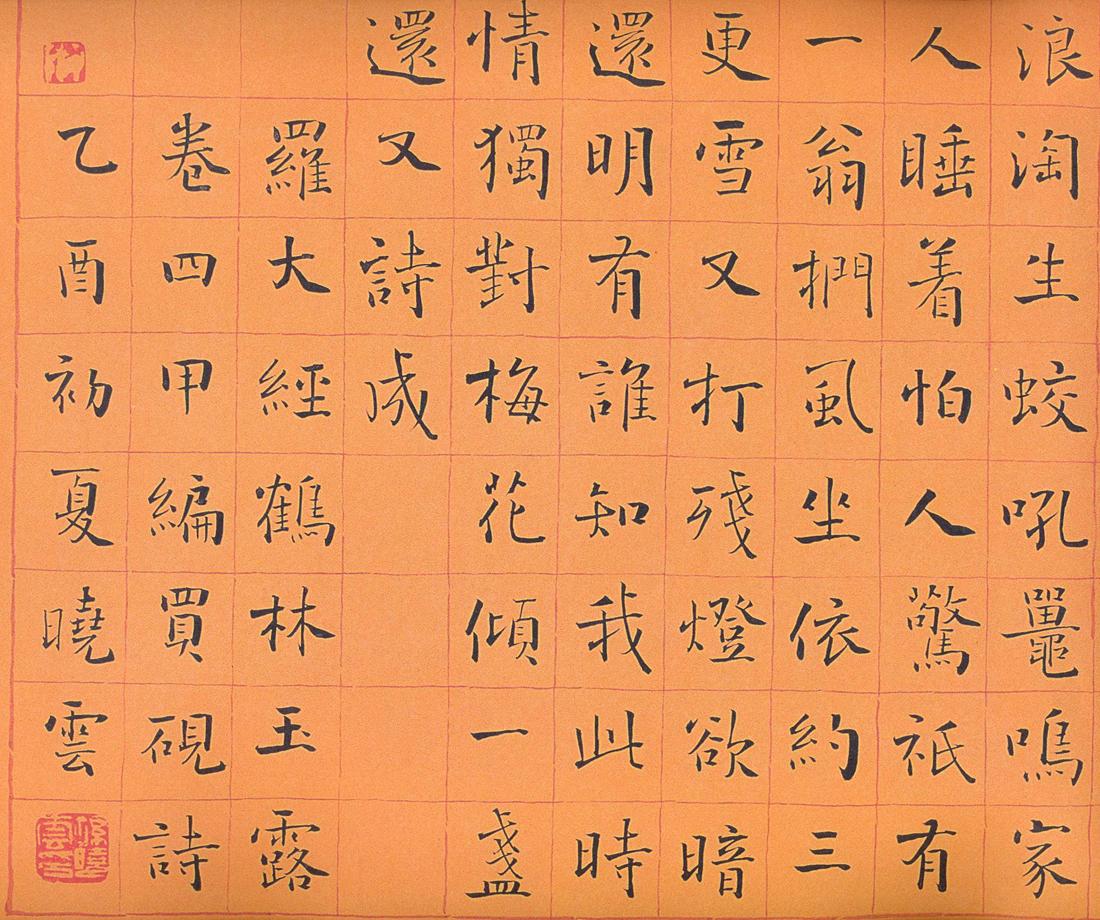 浪淘生蛟吼鼉鳴家
人睡着怕人驚祇有
一翁捫虱坐依約三
更雪又打殘燈欲暗
還明有誰知我此時
情獨對梅花傾一盞
還又詩成
羅大經鶴林玉露
卷四甲編買硯詩
乙酉初夏曉雲